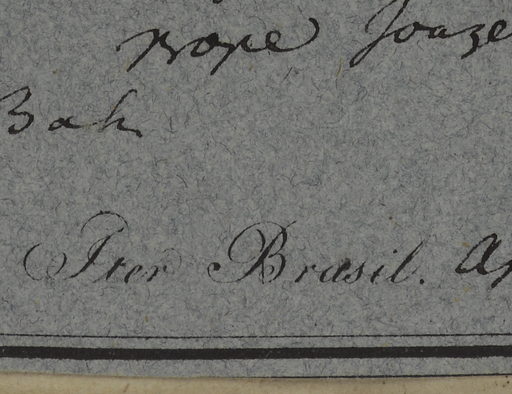 prope Joaze
Bah
Iter Brasil. Ap